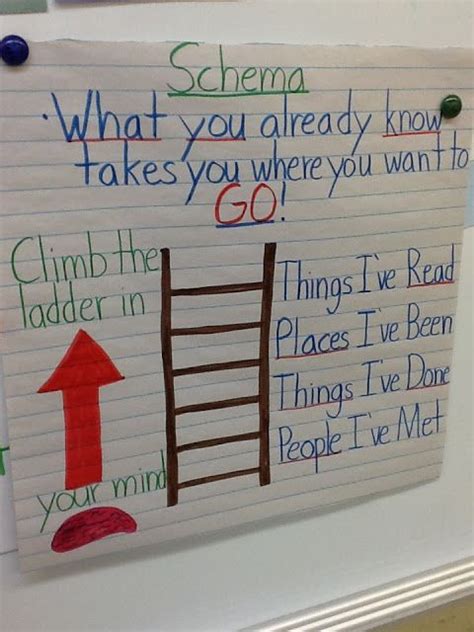 Schema
·What you already know
takes you where you want to
GO!
Climb the
ladder in
your mind
Things I've Read
Places I've Been
Things I've Done
People I've Met